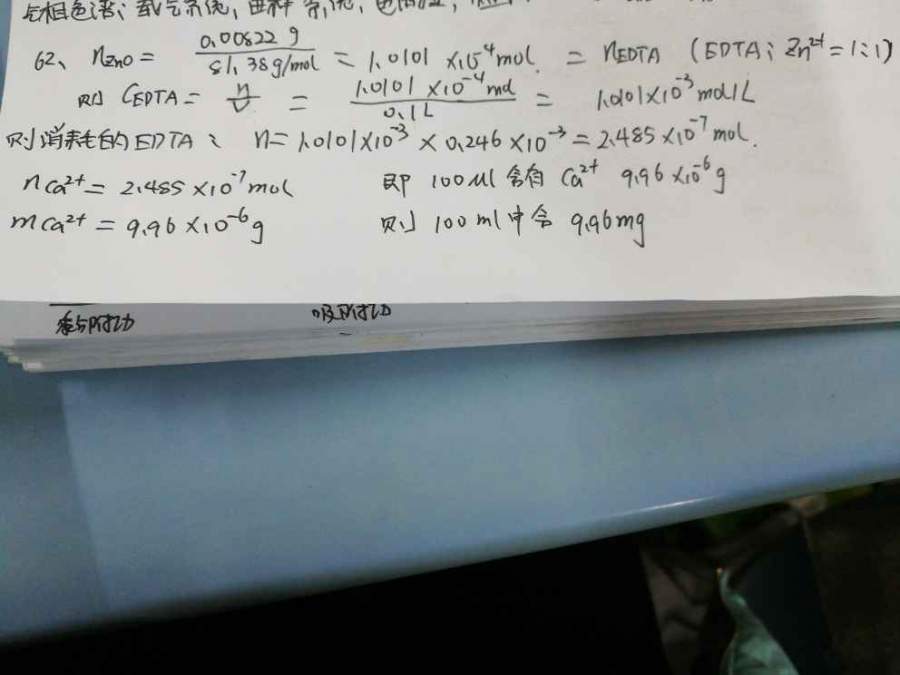 气相色谱;载气系统,进样系统,
62、 nZnO = 0.00822 g / 81.38g/mol = 1.0101 ×10⁻⁴mol. = nEDTA (EDTA:Zn²⁺=1:1)
则 CEDTA = n/V = 1.0101 ×10⁻⁴mol / 0.1L = 1.0101×10⁻³mol/L
则消耗的EDTA: n=1.0101×10⁻³ × 0.246 ×10⁻³ = 2.485 ×10⁻⁷mol.
nCa²⁺ = 2.485 ×10⁻⁷mol 即 100 μl 含有 Ca²⁺ 9.96 ×10⁻⁶g
mCa²⁺ = 9.96×10⁻⁶g 则 100 ml中含 9.96mg
吸附力